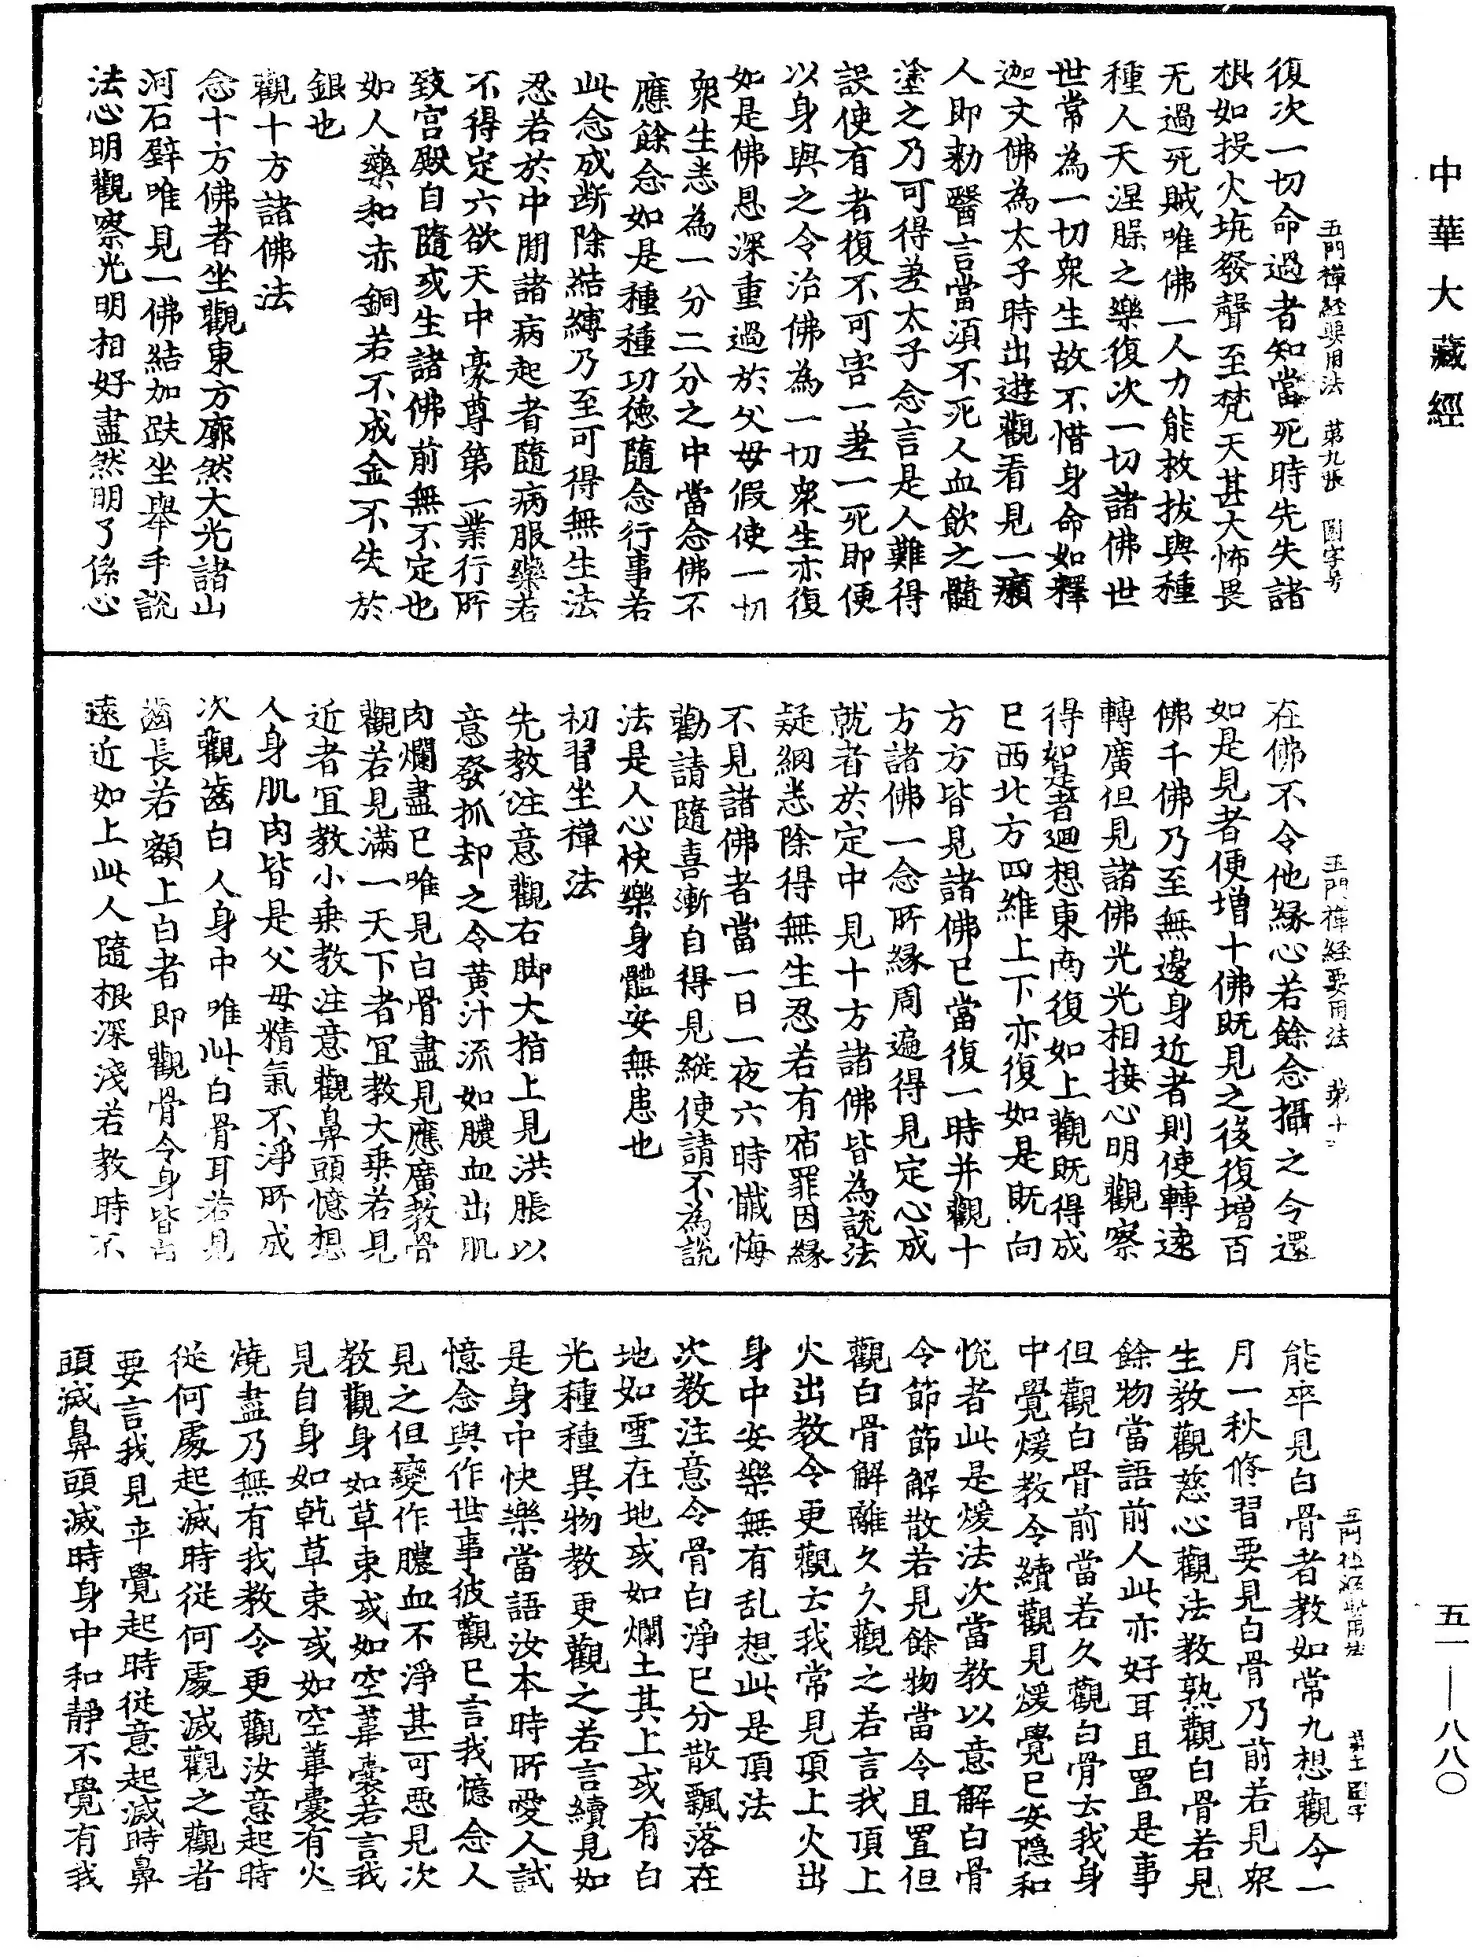 中華大藏經
五一—八八〇
五門禪經要用法　第九張　圖字号
復次一切命過者知當死時先失諸
根如投火坑發聲至梵天甚大怖畏
无過死賊唯佛一人力能救拔與種
種人天涅脲之樂復次一切諸佛世
世常為一切衆生故不惜身命如釋
迦文佛為太子時出遊觀看見一癩
人即勑醫言當須不死人血飲之髓
塗之乃可得差太子念言是人難得
設使有者復不可害一差一死即便
以身與之令治佛為一切衆生亦復
如是佛恩深重過於父母假使一切
衆生悉為一分二分之中當念佛不
應餘念如是種種功德隨念行事若
此念成斷除結縛乃至可得無生法
忍若於中閒諸病起者隨病服藥若
不得定六欲天中豪尊第一業行所
致宮殿自隨或生諸佛前無不定也
如人藥和赤銅若不成金不失於
銀也
觀十方諸佛法
念十方佛者坐觀東方廓然大光諸山
河石壁唯見一佛結加趺坐舉手說
法心明觀察光明相好畫然明了係心
五門禪經要用法　第十
在佛不令他緣心若餘念攝之令還
如是見者便增十佛既見之後復增百
佛千佛乃至無邊身近者則使轉遠
轉廣但見諸佛光光相接心明觀察
得智是者迴想東南復如上觀既得成
已西北方四維上下亦復如是既向
方方皆見諸佛已當復一時并觀十
方諸佛一念所緣周遍得見定心成
就者於定中見十方諸佛皆為說法
疑網悉除得無生忍若有宿罪因緣
不見諸佛者當一日一夜六時懺悔
勸請隨喜漸自得見縱使請不為說
法是人心快樂身體安無患也
初習坐禪法
先教注意觀右脚大指上見洪脹以
意發抓却之令黃汁流如膿血出肌
肉爛盡已唯見白骨盡見應廣教骨
觀若見滿一天下者宜教大乘若見
近者宜教小乘教注意觀鼻頭憶想
人身肌肉皆是父母精氣不淨所成
次觀齒白人身中唯此白骨耳若見
齒長若額上白者即觀骨令身皆白
遠近如上此人隨根深淺若教時不
五門禪經要用法
能卒見白骨者教如常九想觀令一
月一秋修習要見白骨乃前若見衆
生教觀慈心觀法教熟觀白骨若見
餘物當語前人此亦好耳且置是事
但觀白骨前當若久觀白骨去我身
中覺煖教令續觀見煖覺已安隱和
悅者此是煖法次當教以意解白骨
令節節解散若見餘物當令且置但
觀白骨解離久久觀之若言我頂上
火出教令更觀去我常見頂上火出
身中安樂無有亂想此是頂法
次教注意令骨白淨已分散飄落在
地如雪在地或如爛土其上或有白
光種種異物教更觀之若言續見如
是身中快樂當語汝本時所愛人試
憶念與作世事彼觀已言我憶念人
見之但變作膿血不淨甚可惡見次
教觀身如草束或如空葦囊若言我
見自身如乾草束或如空葦囊有火
燒盡乃無有我教令更觀汝意起時
從何處起滅時從何處滅觀之觀者
要言我見卒覺起時從意起滅時鼻
頭滅鼻頭滅時身中和靜不覺有我